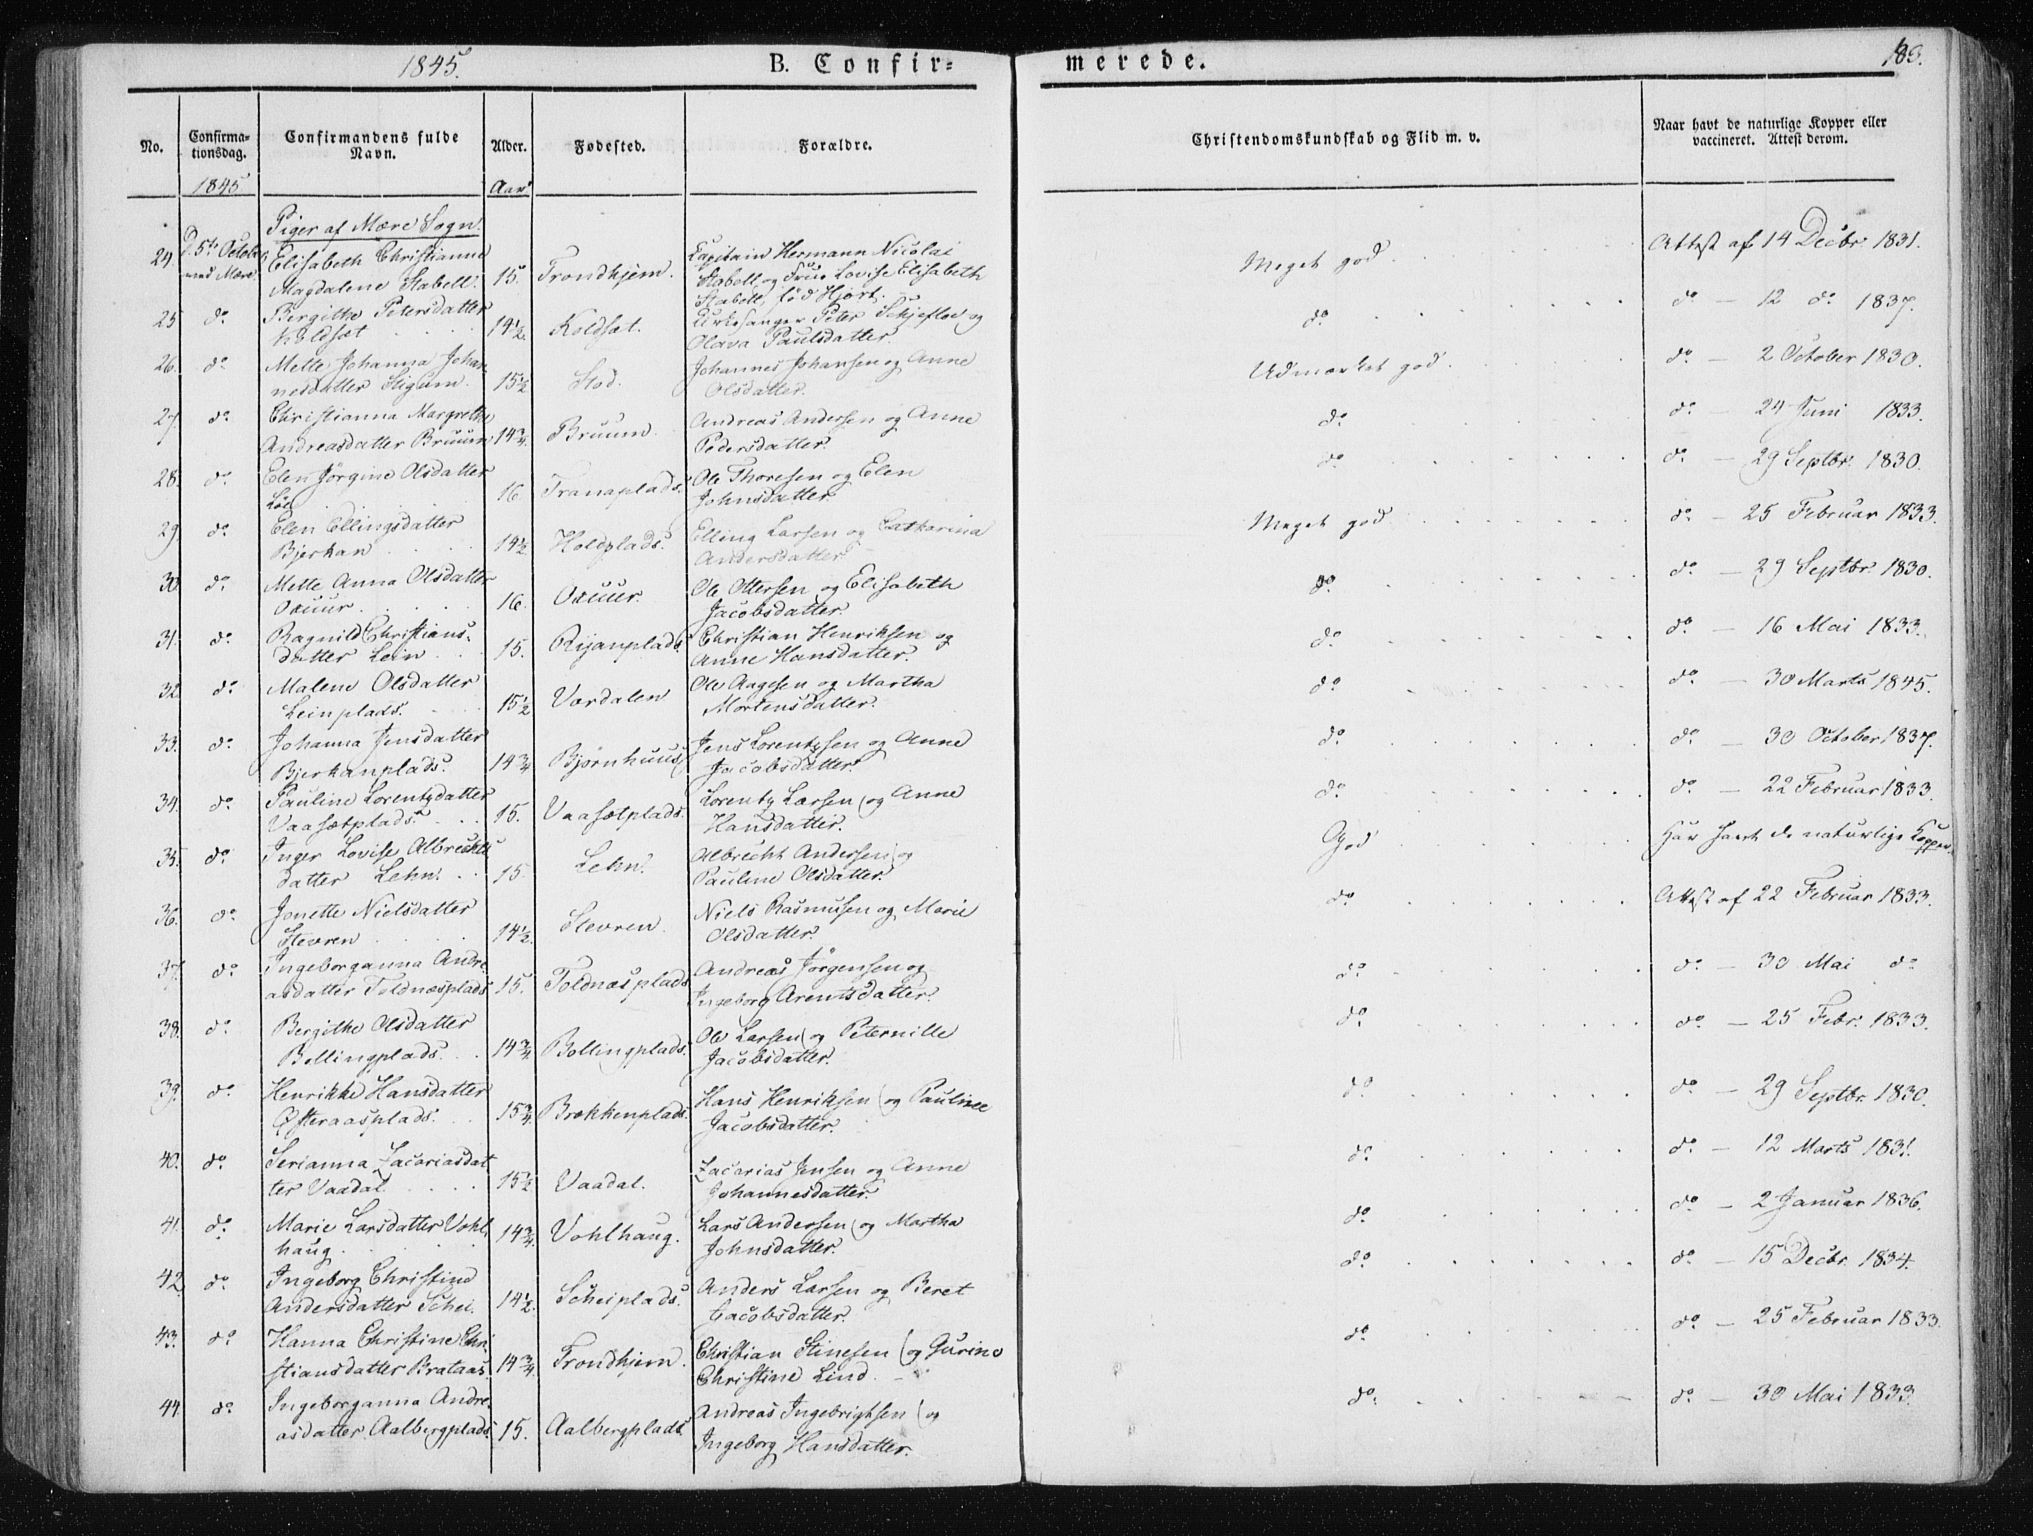 1845.
B. Confir=
merede.
183.
No.
Confirma-
tionsdag.
Confirmandens fulde
Navn.
Alder.
Fødested.
Forældre.
Christendomskundskab og Flid m. v.
Naar havt de naturlige Kopper eller
vaccineret. Attest derom.
1845
Aar
Piger af Mære Sogn.
24 d. 5te Octob. Elisabeth Christianne 15. Trondhjem. Kapitain Hermann Nicolai Meget god. Attest af 14 Decbr 1831.
ved Mære. Magdalene Stabell. Stabell og Frue Lovise Elisabeth
Stabell, fød Hjort.
25 do Bergithe Petersdatter 14½. Koldsæt. Kirkesanger Peter Skjefloe og do do — 12 do 1837.
Koldsæt Olava Paulsdatter.
26. do Mette Johanna Johan 15½ Stod. Johannes Johansen og Anne Udmærket god. do — 2 October 1830.
nesdatter Stigum. Olsdatter.
27. do Christianna Margrethe 14¾. Bruum. Andreas Andersen og Anne do. do — 24 Juni 1833.
Andreasdatter Bruum Pedersdatter.
28. do Elen Jørgine Olsdatter 16 Tranaplads. Ole Thoresen og Elen do. do — 29 Septbr. 1830.
Løe Johnsdatter.
29. do Elen Ellingsdatter 14½ Holdplads. Elling Larsen og Catharina Meget god do — 25 Februar 1833.
Bjerkan Andersdatter
30. do Mette Anna Olsdatter 16. Oxuur. Ole Ottersen og Elisabeth do. do — 29 Septbr. 1830.
Oxuur. Jacobsdatter.
31. do Ragnild Christians- 15. Rijanplads. Christian Henriksen og do. do — 16 Mai 1833.
datter Lein. Anne Hansdatter.
32. do Malene Olsdatter 15½ Værdalen Ole Aagesen og Martha do do — 30 Marts 1845.
Leinplads. Mortensdatter.
33. do Johanna Jensdatter 14¾ Bjørnhuus Jens Lorentzsen og Anne do. do — 30 October 1837.
Bjerkanplads. Jacobsdatter.
34. do Pauline Lorentzdatter 15. Vaasætplads. Lorentz Larsen og Anne do. do — 22 Februar 1833.
Vaasætplads. Hansdatter.
35. do Inger Lovise Albrechts 15. Lehn. Albrecht Andersen og God Har havt de naturlige Kopper.
datter Lehn. Pauline Olsdatter.
36. do Jonette Nielsdatter 14½. Stevren. Niels Rasmusen og Marie do Attest af 22 Februar 1833.
Stevren Olsdatter.
37. do Ingeborganna Andre 15. Toldnæsplads Andreas Jørgensen og do. do — 30 Mai do
asdatter Toldnæsplads Ingeborg Arentsdatter.
38. do Bergithe Olsdatter 14¾ Bollingplads. Ole Larsen og Peternille do. do — 25 Febr. 1833.
Bollingplads. Jacobsdatter.
39. do Henrikke Hansdatter 15¾. Brækkenplads. Hans Henriksen og Pauline do. do — 29 Septbr. 1830.
Efteraasplads. Jacobsdatter.
40. do Serianna Zacariasdat 15½ Vaadal. Zacarias Jensen og Anne do. do — 12 Marts 1831.
ter Vaadal. Johannesdatter.
41. do Marie Larsdatter Vohl 14¾. Vohlhaug. Lars Andersen og Martha do do — 2 Januar 1836.
haug. Johnsdatter.
42. do Ingeborg Christine 14½. Scheiplads. Anders Larsen og Beret do. do — 15 Decbr. 1834.
Andersdatter Schei. Jacobsdatter.
43. do Hanna Christine Chri 14¾. Trondhjem. Christian Stinesen og Gurine do. do — 25 Februar 1833.
stiansdatter Brataas Christine Lind.
44. do Ingeborganna Andre- 15. Aalbergplads. Andreas Ingebrigtsen og do. do — 30 Mai 1833.
asdatter Aalbergplads. Ingeborg Hansdatter.